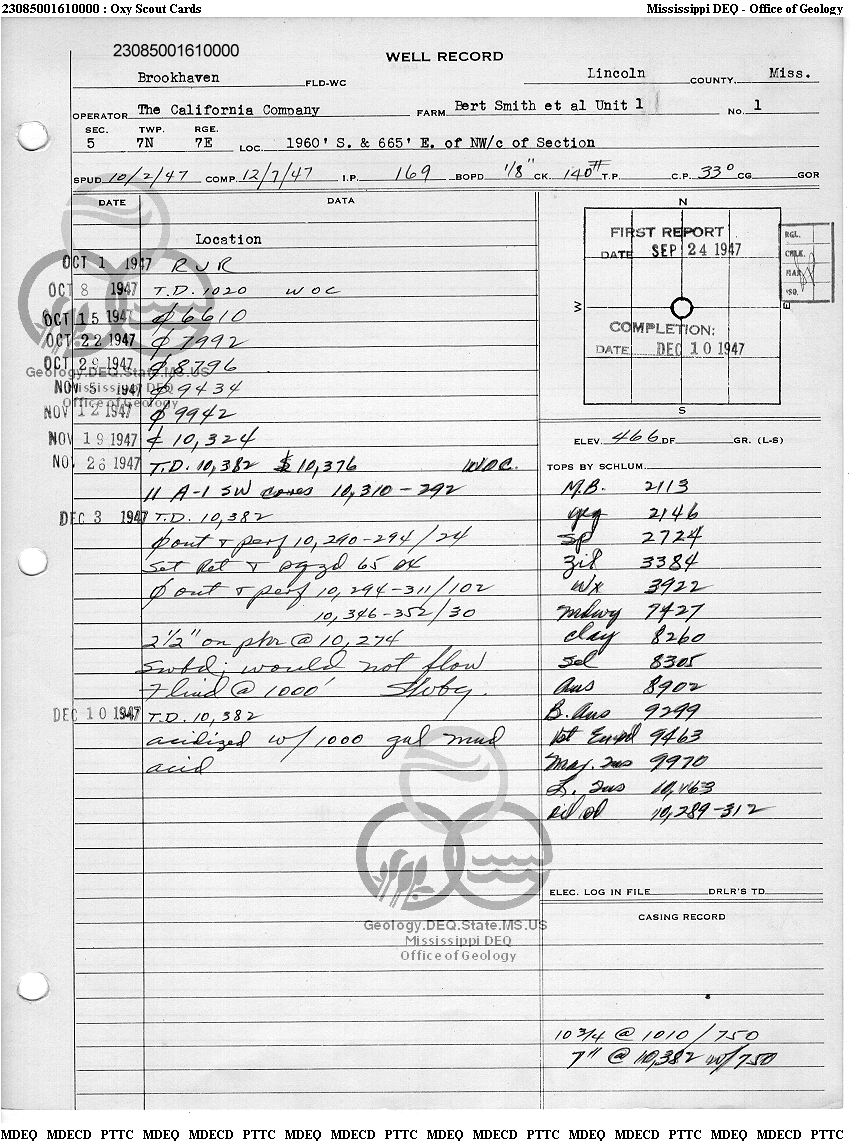 23085001610000 : Oxy Scout Cards Mississippi DEQ - Office of Geology
23085001610000
WELL RECORD
Brookhaven FLD-WC Lincoln COUNTY Miss.
OPERATOR The California Company FARM Bert Smith et al Unit 1 NO. 1
SEC. TWP. RGE.
5 7N 7E LOC. 1960' S. & 665' E. of NW/c of Section
SPUD 10/2/47 COMP. 12/7/47 I.P. 169 BOPD 1/8" CK. 140# T.P. C.P. 33° CG GOR
DATE DATA
Location
OCT 1 1947 RUR
OCT 8 1947 T.D. 1020 WOC
OCT 15 1947 ϕ 6610
OCT 22 1947 ϕ 7992
OCT 29 1947 ϕ 8796
NOV 5 1947 ϕ 9434
NOV 12 1947 ϕ 9942
NOV 19 1947 ¢ 10,324
NOV 26 1947 T.D. 10,382 $ 10,376 WOC.
11 A-1 SW cores 10,310-292
DEC 3 1947 T.D. 10,382
ϕ out & perf 10,290-294/24
Set Ret & sqzd 65 sx
ϕ out & perf 10,294-311/102
10,346-352/30
2 1/2" on pkr @ 10,274
Swbd; would not flow
Fluid @ 1000'
DEC 10 1947 T.D. 10,382
acidized w/ 1000 gal mud
acid
N
W
E
S
FIRST REPORT
DATE SEP 24 1947
COMPLETION:
DATE DEC 10 1947
RGL.
CHLK.
MAR.
SO.
ELEV. 466 DF GR. (L-S)
TOPS BY SCHLUM.
M.B. 2113
2146
Sp 2724
Zil 3384
Wx 3922
Mdwy 7427
Clay 8260
Sel 8305
Aus 8902
B. Aus 9299
9463
Mas. Tus 9970
L. Tus 10,163
Oil sd 10,289-312
ELEC. LOG IN FILE DRLR'S TD
CASING RECORD
10 3/4 @ 1010/750
7" @ 10,382 w/750
Geology.DEQ.State.MS.US
Mississippi DEQ
Office of Geology
Geology.DEQ.State.MS.US
Mississippi DEQ
Office of Geology
MDEQ MDECD PTTC MDEQ MDECD PTTC MDEQ MDECD PTTC MDEQ MDECD PTTC MDEQ MDECD PTTC MDEQ MDECD PTTC